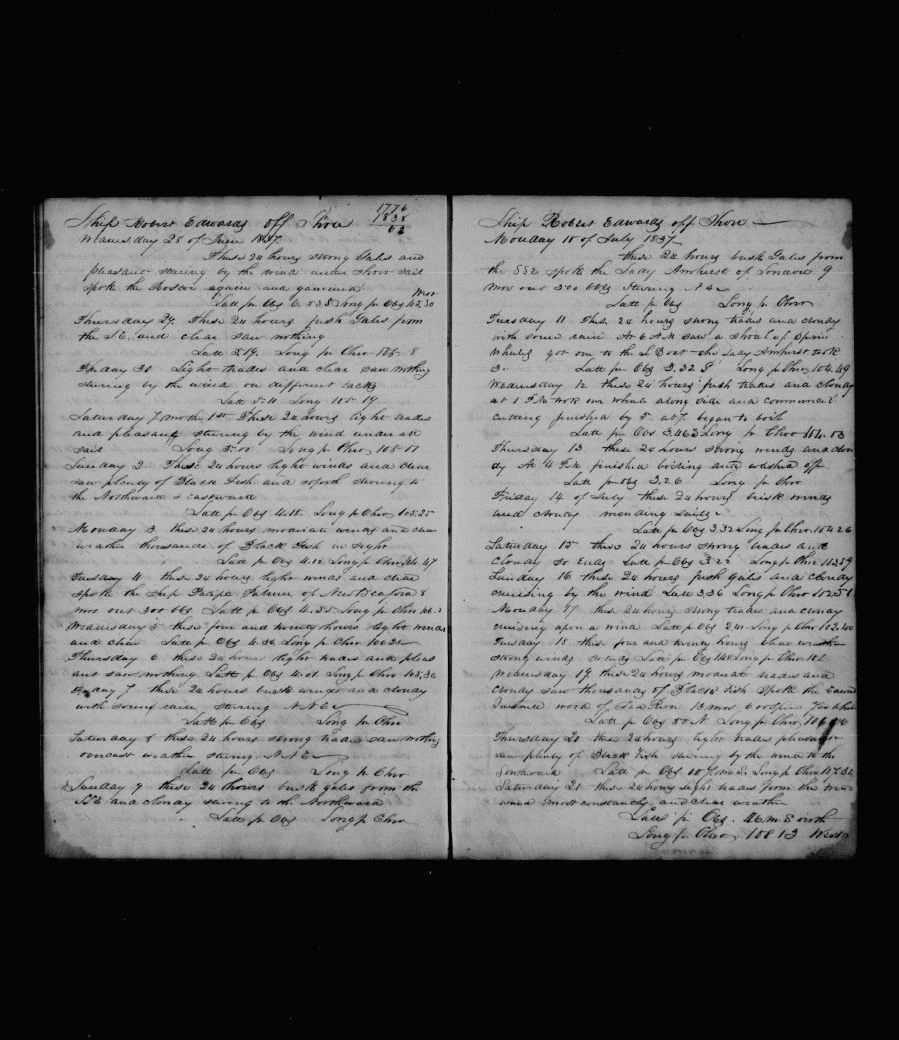 Ship Robert Edwards off Shore
1776
1838
62
Wednesday 28 of June 1837
These 24 hours strong Gales and
pleasant stearing by the wind under short sail
spoke the Boston again and gammed
West
Latt pr Obs 6.53 S Long pr Obs 105,30
Thursday 29. These 24 hours fresh Gales from
the SE and clear saw nothing
Latt 5.19. Long pr Chro 105. 8
Fryday 30 Light trades and clear saw nothing
stearing by the wind on different tacks
Latt 5.11 Long 105.19
Saturday 7 month 1st These 24 hours light trades
and pleasant stearing by the wind under all
sail Long 5.00 Long pr Chro 105.17
Sunday 2 These 24 hours light winds and clear
saw plenty of Black Fish and stearing to
the Northward & eastward
Latt pr Obs 4.18. Long pr Chro, 105.25
Monday 3 these 24 hours moderate winds and clear
weather thousands of Black Fish in sight
Latt pr Obs 4.12 Long pr Chro 104.47
Tuesday 4 these 24 hours light winds and clear
spoke the Ship Pacific Palmer of New Bedford 8
mos out 300 bbs Latt pr Obs 4.35 Long pr Chro
Wednesday 5 these four and twenty hours light winds
and clear Latt pr Obs 4.36 Long pr Chro
Thursday 6 these 24 hours light trades and pleas
ant saw nothing Latt pr Obs 4.01 Long pr Chro 103,36
Fryday 7 these 24 hours brisk winds and cloudy
with some rain stearing N N E
Latt pr Obs Long pr Chro
Saturday 8 these 24 hours strong trades saw nothing
overcast weather stearing N N E
Latt pr Obs Long pr Chro
Sunday 9 these 24 hours brisk gales from the
SSE and cloudy stearing to the Northward
Latt pr Obs Long pr Chro
Ship Robert Edwards off Shore
Monday 10 of July 1837
these 24 hours brisk Gales from
the SSE spoke the Lady Amhurst of London 9
mos out 300 bbls Stearing N E
Latt pr Obs Long pr Chro
Tuesday 11 These 24 hours strong trades and cloudy
with some rain At 6 A M saw a shoal of Sperm
whales got one to the L Boat the Lady Amhurst took
3. Latt pr Obs 3,32 S Long pr Chro 104.49
Wednesday 12 these 24 hours fresh trades and cloudy
at 1 P M took our whale along side and commenced
cutting finished by 5 at 7 began to boil
Latt pr Obs Long pr Chro 104.03
Thursday 13 these 24 hours strong winds and clou
dy At 4 P M finished boiling and washed off
Latt pr Obs 3,26 Long pr Chro
Friday 14 of July these 24 hours brisk winds
and cloudy mending sails
Latt pr Obs 3 32 Long pr Chro 104 26
Saturday 15 these 24 hours strong trades and
Cloudy so ends Latt pr Obs 3 22 Long pr Chro 103 59
Sunday 16 these 24 hours fresh gales and cloudy
cruising by the wind Latt 3.36 Long pr Chro 102.51
Monday 17 these 24 hours strong trades and cloudy
cruising upon a wind Latt pr Obs 2.41 Long pr Chro 102.40
Tuesday 18 these four and twenty hours clear weather
strong winds so ends Latt pr Obs Long pr Chro
Wednesday 19 these 24 hours moderate trades and
cloudy saw thousands of Black Fish spoke the
13 mos 600
Latt pr Obs N Long pr Chro 106 06
Thursday 20 these 24 hours light trades pleasant
saw plenty of Black Fish stearing by the wind to the
Southward Latt pr Obs 00 7 m S. Long pr Chro 107.32
Saturday 21 these 24 hours light trades from the
wind most constantly and clear weather
Latt pr Obs. 46.m. South
Long pr Chro 108 13 West